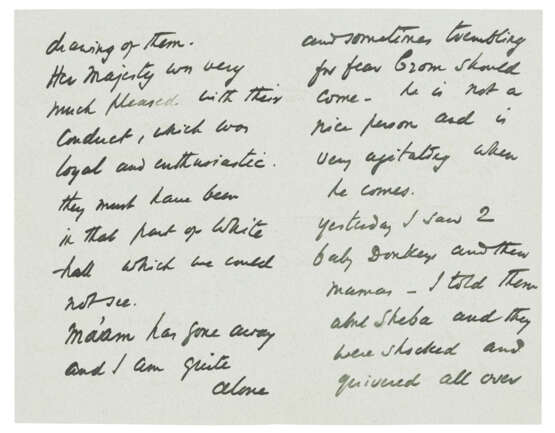 drawing of them.
Her Majesty was very
much pleased with their
conduct, which was
loyal and enthusiastic.
they must have been
in that part of White
hall which we could
not see.
Ma'am has gone away
and I am quite
alone
and sometimes trembling
for fear Crom should
come - he is not a
nice person and is
very agitating when
he comes.
yesterday I saw 2
baby Donkeys and their
mamas - I told them
abut Sheba and they
were shocked and
quivered all over